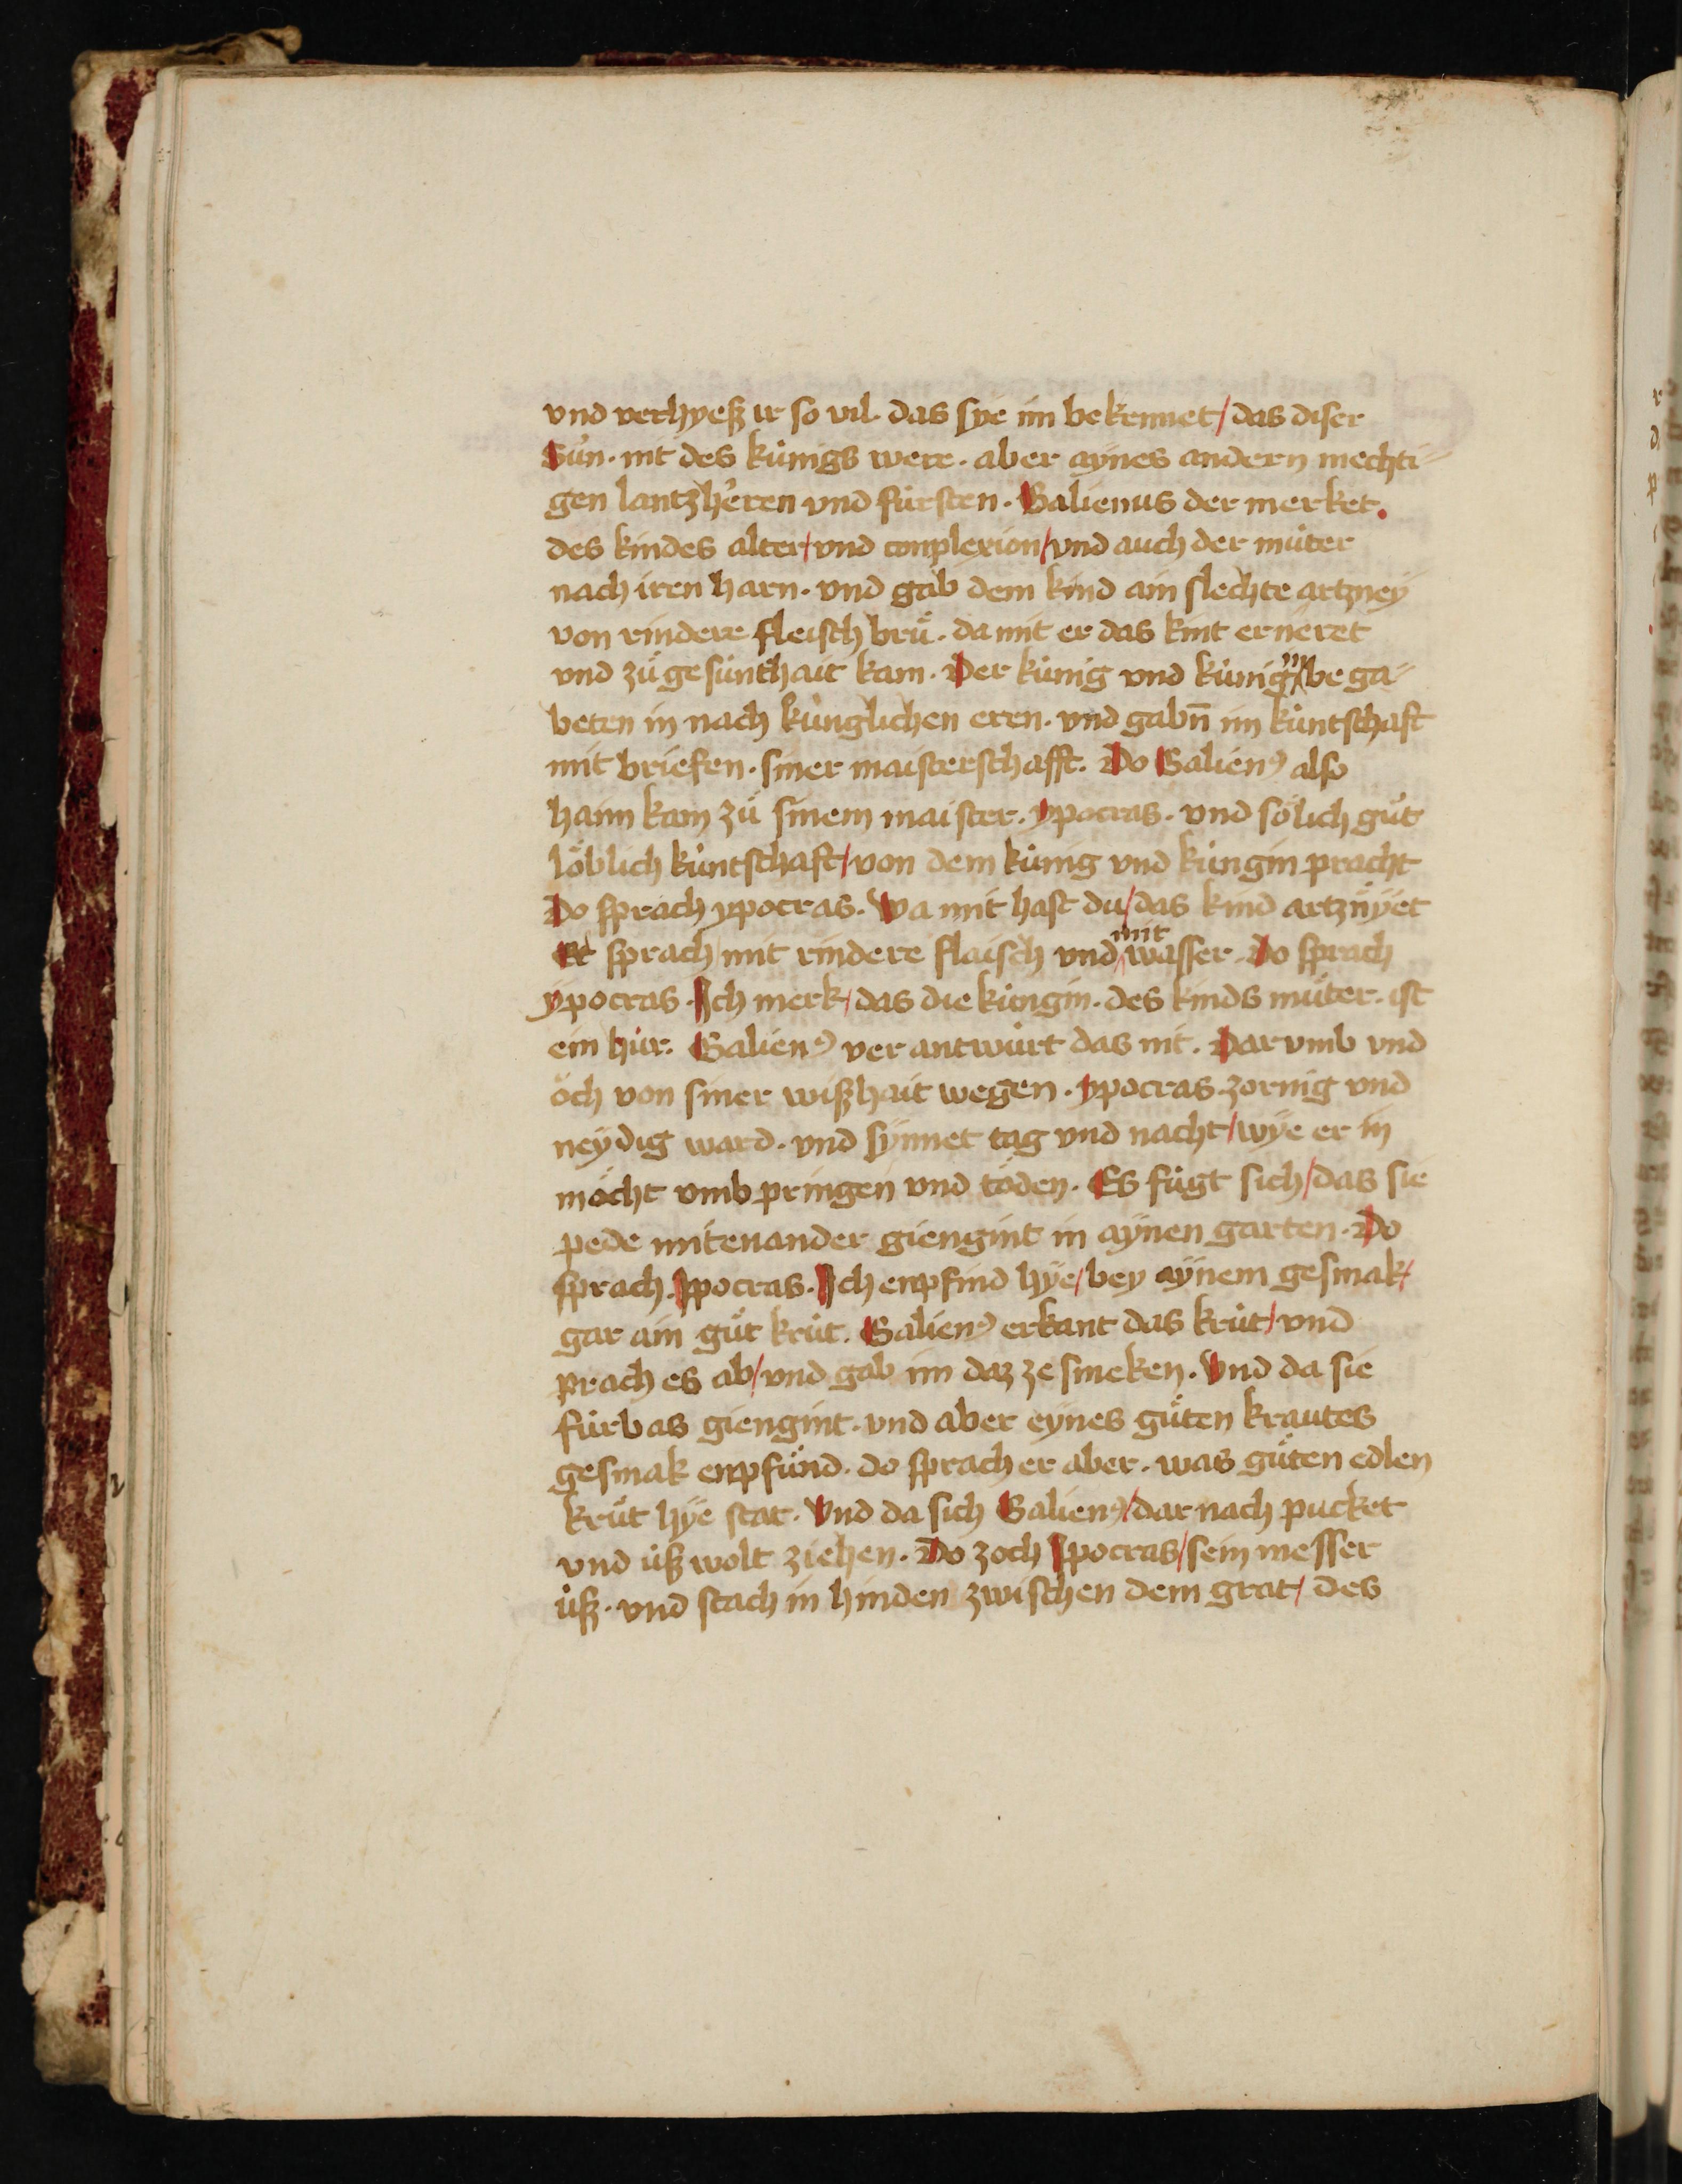 vnd verhyeß ir so vil. das sye im bekennet / das diser
Sůn. nit des kůnigs were. aber aÿnes andern mechti=
gen lantzhe̓ren vnd fůrsten. Galienus der merket.
des kindes alter / vnd conplexion / vnd auch der můter
nach iren harn. vnd gab dem kind ain slechte artzneÿ
von rindere fleisch brů. da mit er das kint erneret
vnd zů gesůnthait kam. Der kůnig vnd kůnigin be ga=
beten in nach kůnglichen eren. vnd gabn̄ im kůntschaft
mit briefen. siner maisterschafft. Do Galienꝰ also
haim kam zů sinem maister. ypocras. vnd sölich gůt
löblich kůntschaft / von dem kůnig vnd kůngin pracht
Do sprach ypocras. Wa mit hast du / das kind artznÿet
Er sprach mit rindere flaisch vnd mit wasser. Do sprach
ÿpocras. Ich merk / das die kůngin. des kinds můter. ist
ein hůr. Galienꝰ ver antwůrt das nit. Dar vmb vnd
öch von siner wißhait wegen. ypocras zornig vnd
neÿdig ward. vnd sÿnnet tag vnd nacht / wÿe er in
möcht vmb pringen vnd töden. Es fůgt sich / das sie
pede mitenander giengint in aÿnen garten. Do
sprach. Ipocras. Ich enpfind hÿe / bey aÿnem gesmak /
gar ain gůt krůt. Galienꝰ erkant das krůt / vnd
prach es ab / vnd gab im daz ze smeken. Vnd da sie
fůrbas giengint. vnd aber eÿnes gůten krautes
gesmak enpfůnd. do sprach er aber. was gůten edlen
krůt hÿe stat. Vnd da sich Galienꝰ / dar nach pucket
vnd ůß wolt ziehen. Do zoch Ipocras / sein messer
ůß. vnd stach in hinden zwischen dem grat / des